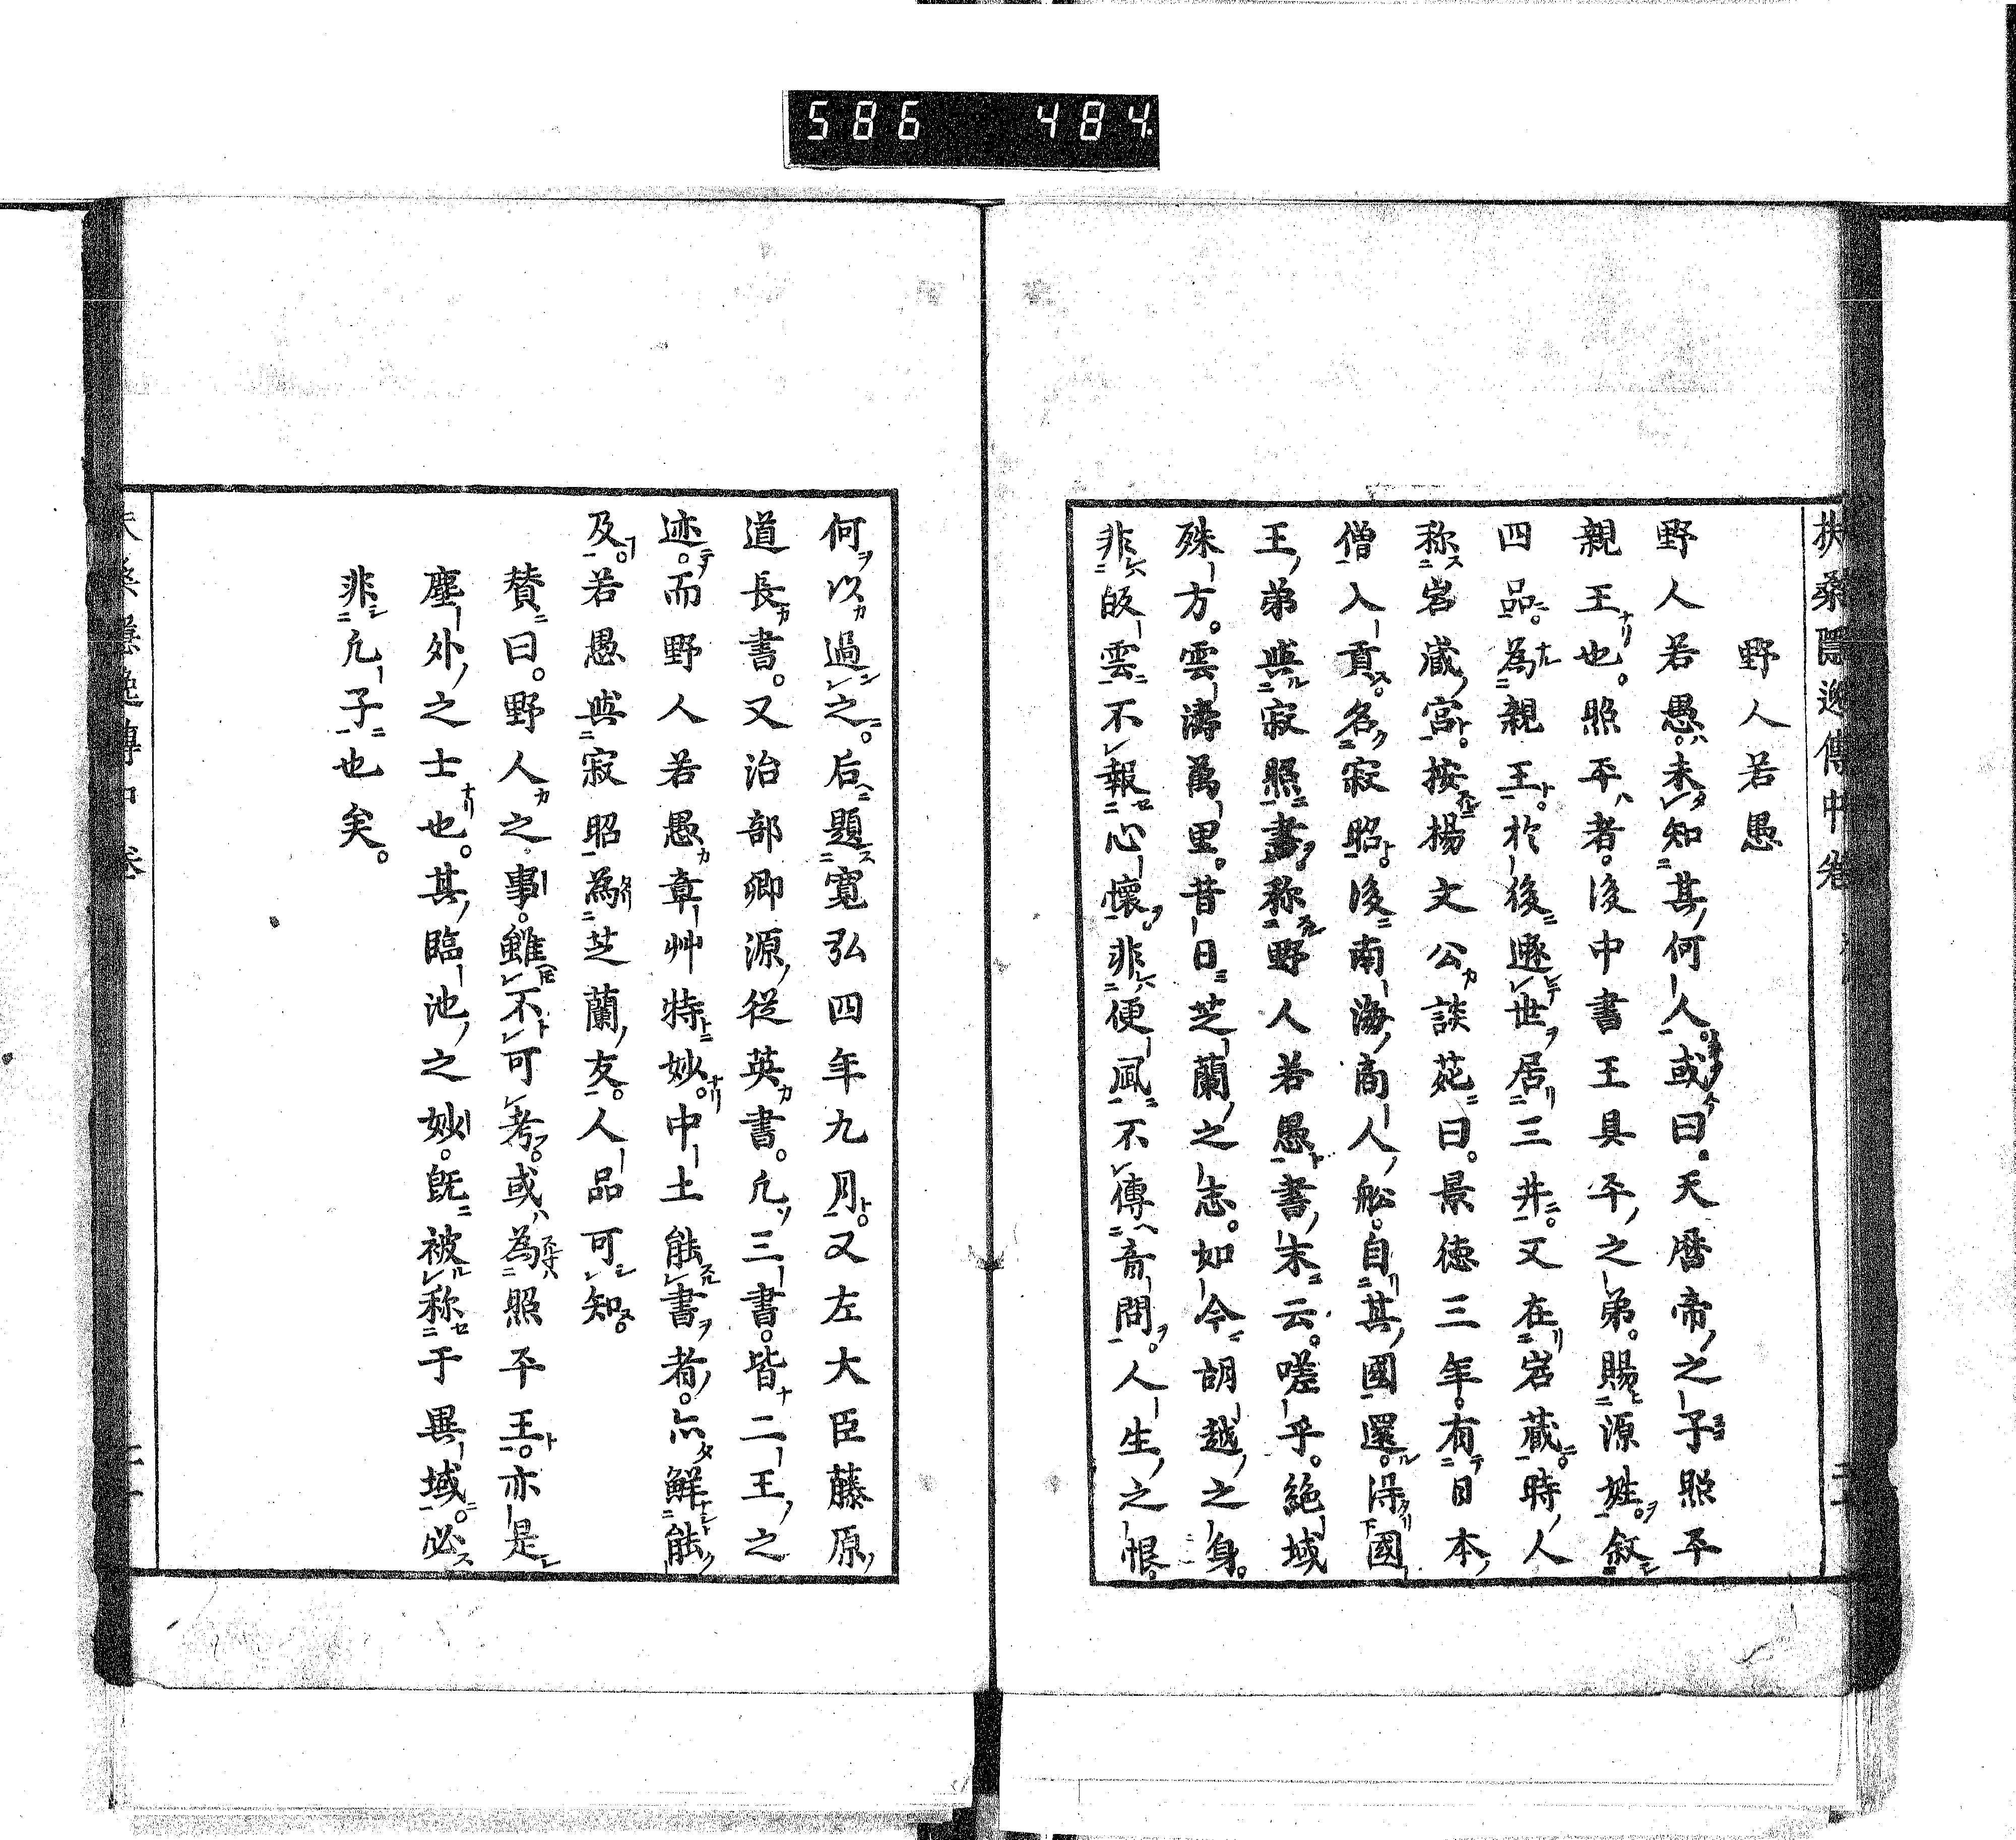 586 484
扶桑隱逸傳中卷
野人若愚
野人若愚。未知其何人。或曰。天曆帝之子照平
親王也。照平者。後中書王具平之弟。賜源姓。敘
四品。為親王。於後遯世居三井。又在岩藏。時人
称岩藏宮。按楊文公談苑曰。景徳三年。有日本
僧入貢。名寂昭。後南海商人舩。自其國還。得國
王弟與寂照書。称野人若愚書。末云。嗟乎。絶域
殊方。雲濤萬里。昔日芝蘭之志。如今胡越之身。
非皈雲不報心懷。非便風不傳音問。人生之恨。
何以過之。后題寛弘四年九月。又左大臣藤原
道長書。又治部卿源從英書。凢三書。皆二王之
迹。而野人若愚章艸特妙。中土能書者。亦鮮能
及。若愚與寂昭為芝蘭友。人品可知。
賛曰。野人之事。雖不可考。或為照平王。亦是
塵外之士也。其臨池之妙。既被称于異域。必
非凢子也矣。